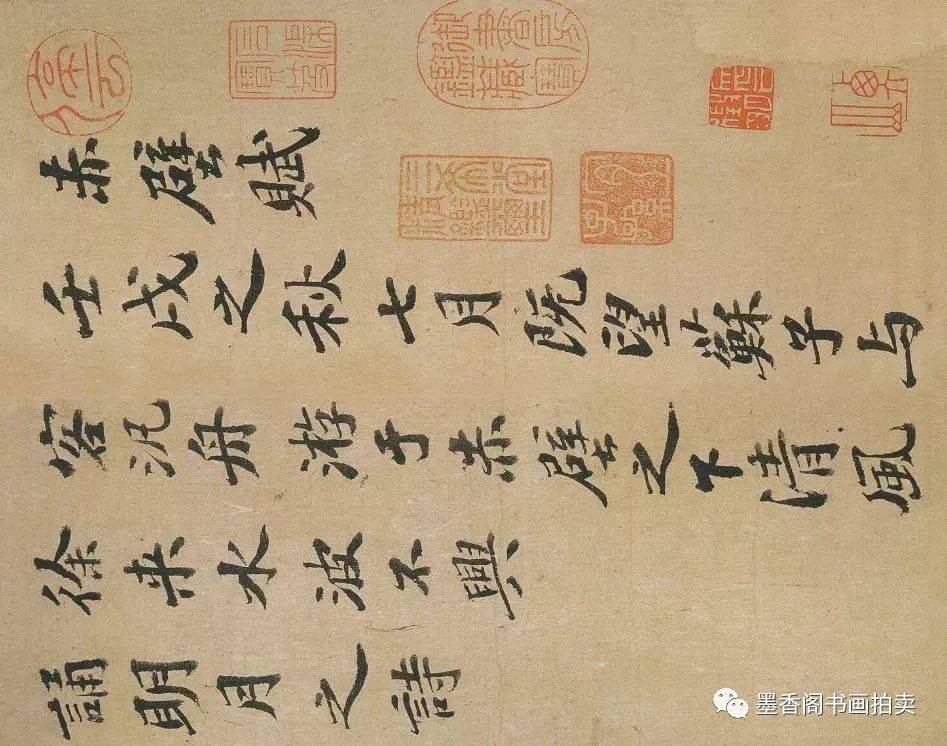 赤壁賦
壬戌之秋七月既望蘇子与
客泛舟游于赤壁之下清風
徐来水波不興
誦明月之詩
墨香阁书画拍卖